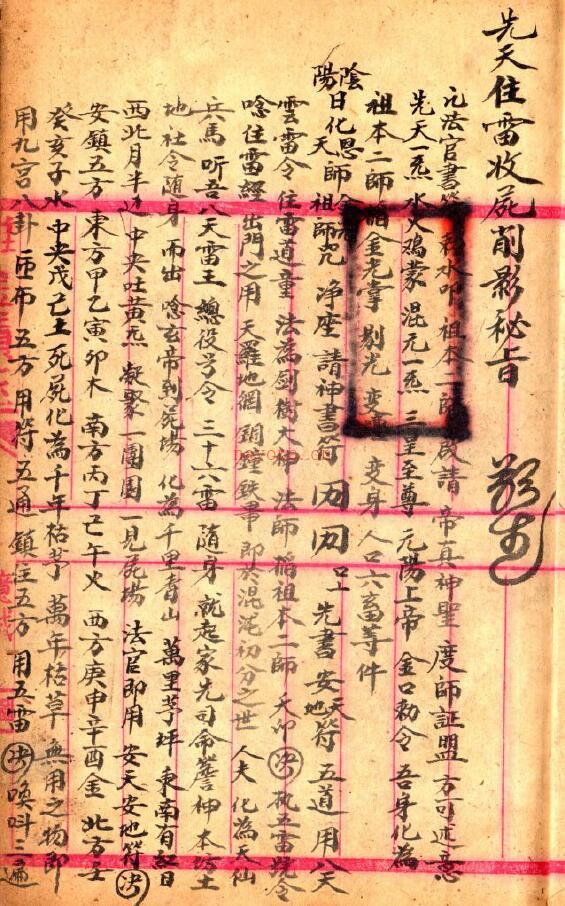 先天住雷收屍削影秘旨
凡法官書符 水叩祖本二師 啟請 帝真神聖 度師証盟 方可述意
先天一炁 水火鴻蒙 混元一炁 三皇至尊 元陽上帝 金口勅令 吾身化為
祖本二師 金老掌 別光 變 變身 人口六畜等件
陰陽日化恩師 天祖師咒 净座 請神書符 先書安天地符 五道 用八天
雲雷令 住雷道童 法為剑樹大 法師 稱祖本二師 天印 決 五雷號令
唸住雷經出門之用 天羅地網 銅鐘鉄 即於混沌初分之世 人夫化為天仙
兵馬 听吾八天雷王 總役号令 三十六雷随身 就起家先司命 神本坊土
地社令随身 而出 唸玄帝到屍場 化為千里青山 萬里茅坪 東南有紅日
西北月半边 中央吐黄炁 凝聚一團圓 一見屍場 法官即用 安天安地符 決
安鎮五方 東方甲乙寅卯木 南方丙丁巳午火 西方庚申辛酉金 北方壬
癸亥子水 中央戊己土 死屍化為千年枯茅 萬年枯草 無用之物即
用九宫八卦 匝布五方 用符五通 鎮住五方 用五雷 決 喚呌三遍